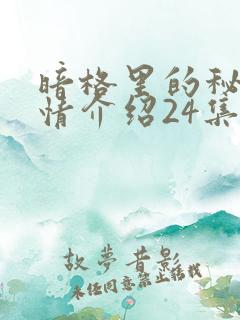 暗格里的秘
情介绍24集
故夢昔影
未经同意禁止搭载